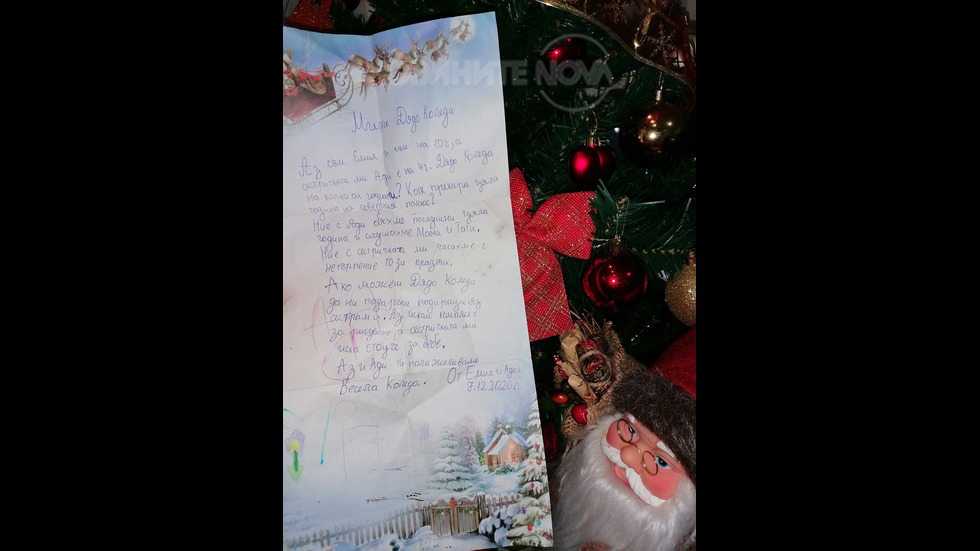 НИТЕ NOVA
Мили Дядо Коледа
Аз съм Емия и съм на 10г, а
сестричката ми Ади е на 4г. Дядо Коледа
на колко си години? Как прекара цяла
година на северния полюс?
Ние с Ади бяхме послушни цяла
година и слушахме Мама и Тати.
Ние с сестричката ми чакахме с
нетърпение този празник.
Ако можеш Дядо Коледа
да ни подариш подаръци Аз
Аз искам комплект
за рисуване, а сестричката ми
иска за бебе.
Аз и Ади ти пожелаваме
Весела Коледа. От Емия и Адел
7.12.2020 г.